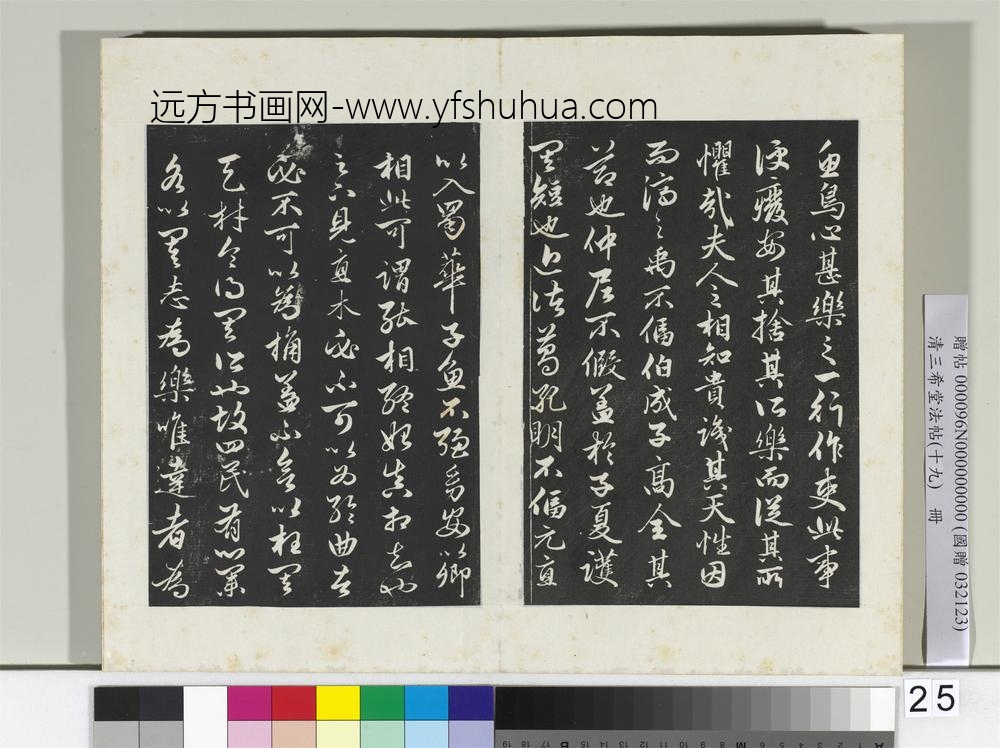 远方书画网-www.yfshuhua.com
魚鳥心甚樂之一行作吏此事
便癈安其捨其所樂而從其所
懼哉夫人之相知貴識其天性因
而濟之禹不偪伯成子高全其
節也仲尼不假蓋於子夏護
其短也近諸葛孔明不偪元直
以入蜀華子魚不强幼安以卿
相此可謂能相終始真相知也
足下見直木必不可以為輪曲者
必不可以為桷蓋不欲以枉其
天材令得其所也故四民有業
各以其志為樂唯達者為
贈帖 000096N000000000 (國贈 032123)
清三希堂法帖(十九) 冊
25